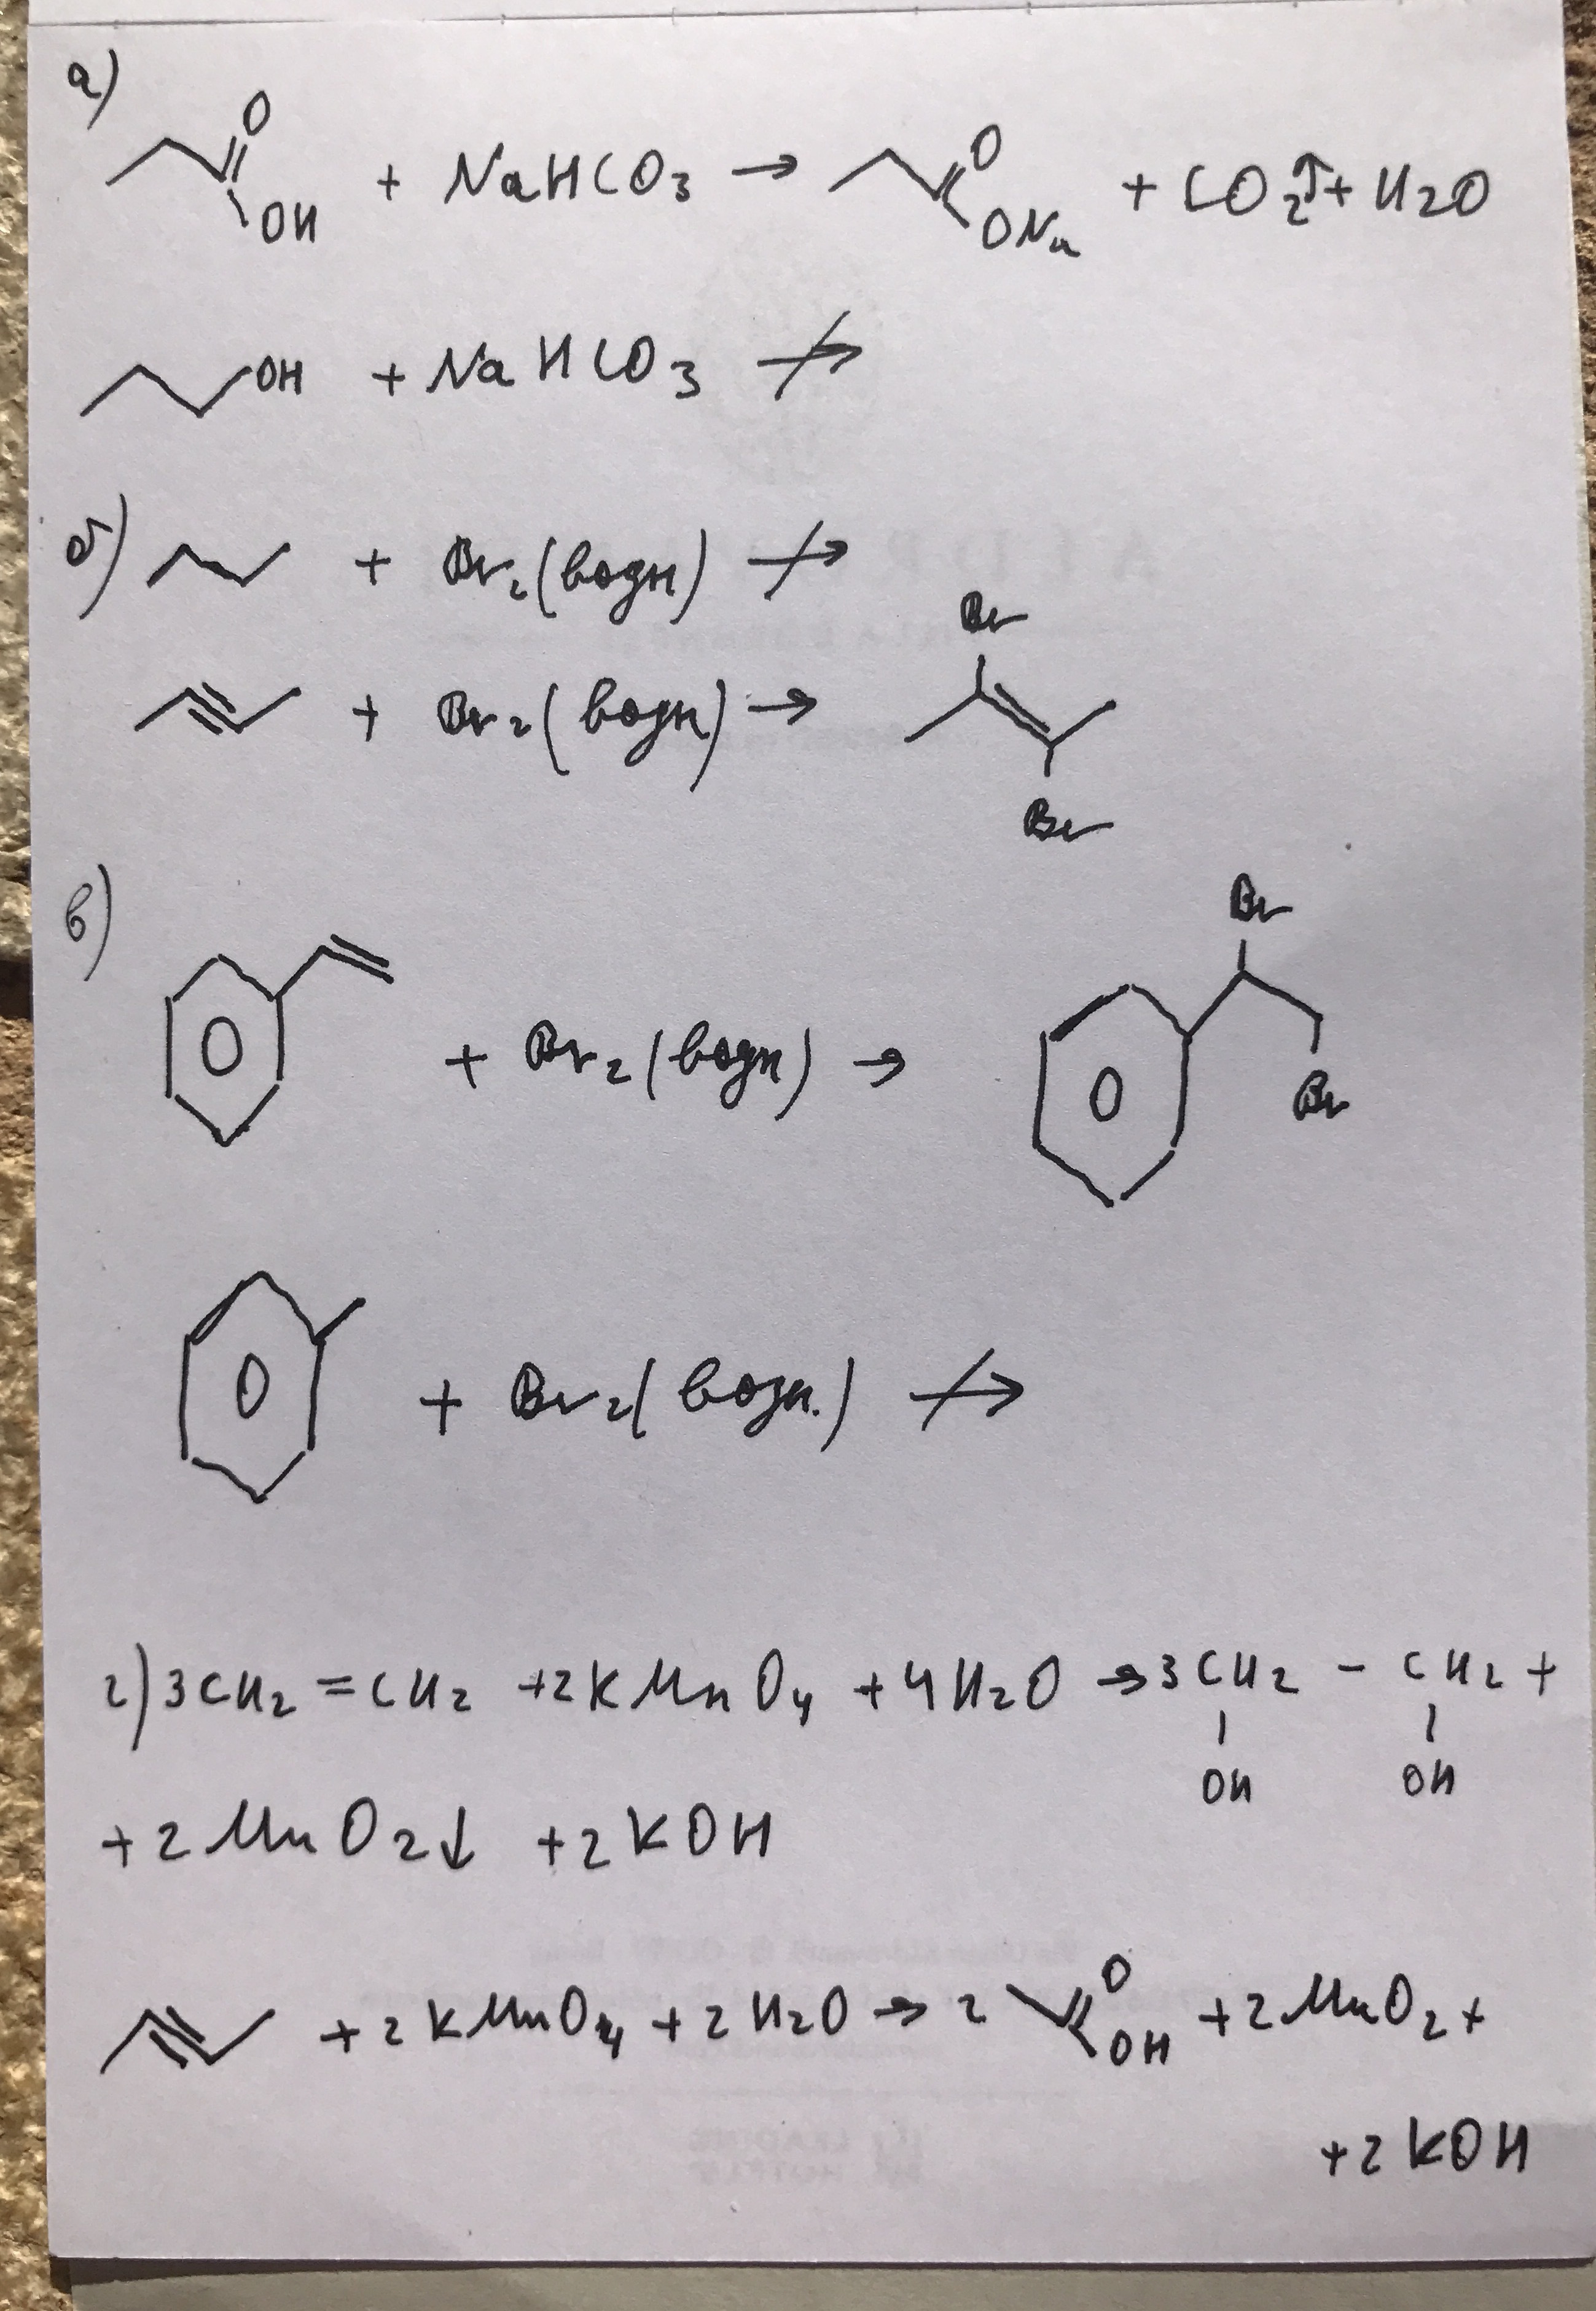 а)
O
OH + NaHCO3 → O ONa + CO2↑ + H2O
OH + NaHCO3 ↛
б) + Br2 (водн) ↛
Br
+ Br2 (водн) →
Br
в)
Br
+ Br2 (водн) →
Br
+ Br2 (водн.) ↛
г) 3CH2 = CH2 + 2KMnO4 + 4H2O → 3CH2 - CH2 +
OH OH
+ 2MnO2↓ + 2KOH
+ 2KMnO4 + 2H2O → 2 O OH + 2MnO2 +
+ 2KOH